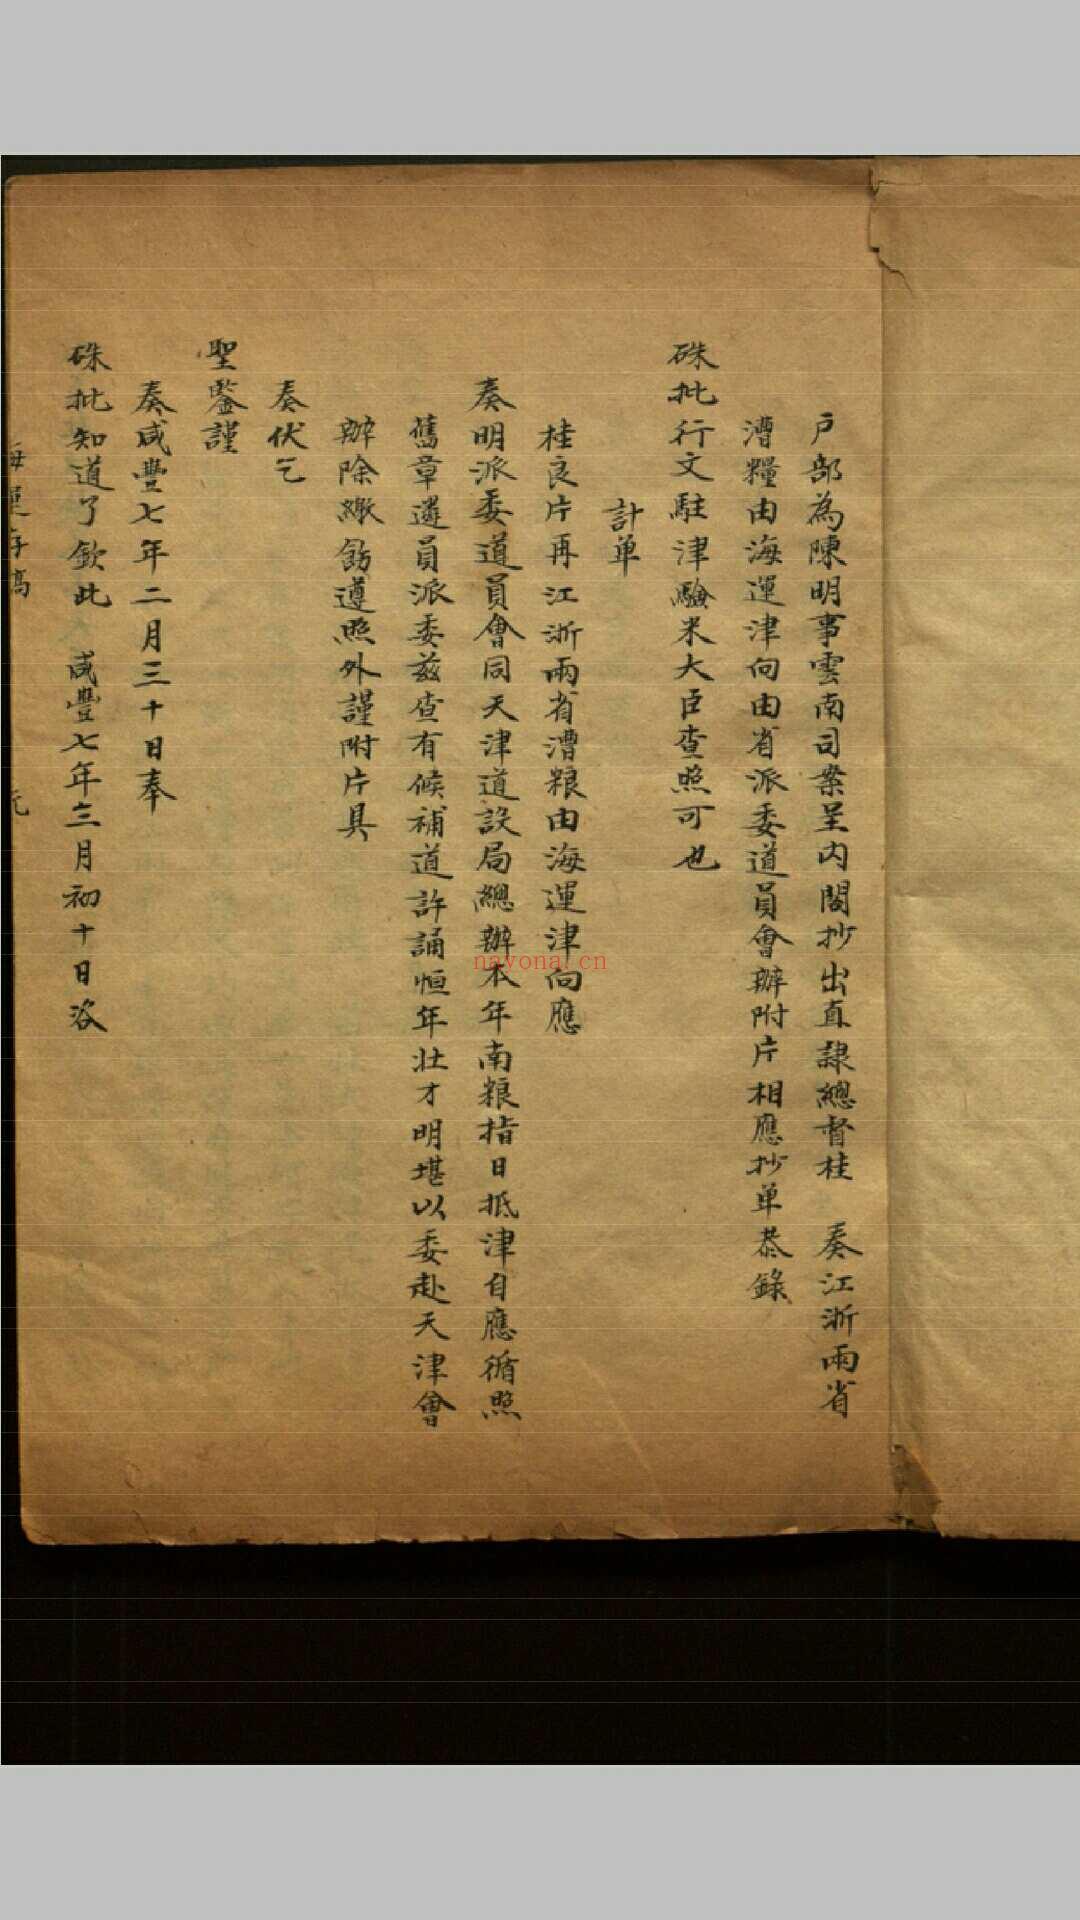 戶部為陳明事雲南司案呈內閣抄出直隸總督桂 奏江浙兩省
漕糧由海運津向由省派委道員會辦附片相應抄單恭錄
硃批行文駐津驗米大臣查照可也
計單
桂良片再江浙兩省漕粮由海運津向應
奏明派委道員會同天津道設局總辦本年南粮指日抵津自應循照
舊章遴員派委兹查有候補道許誦恒年壯才明堪以委赴天津會
辦除繳飭遵照外謹附片具
奏伏乞
聖鑒謹
奏咸豐七年二月三十日奉
硃批知道了欽此 咸豐七年三月初十日咨
海運存稿
元
nayona.cn